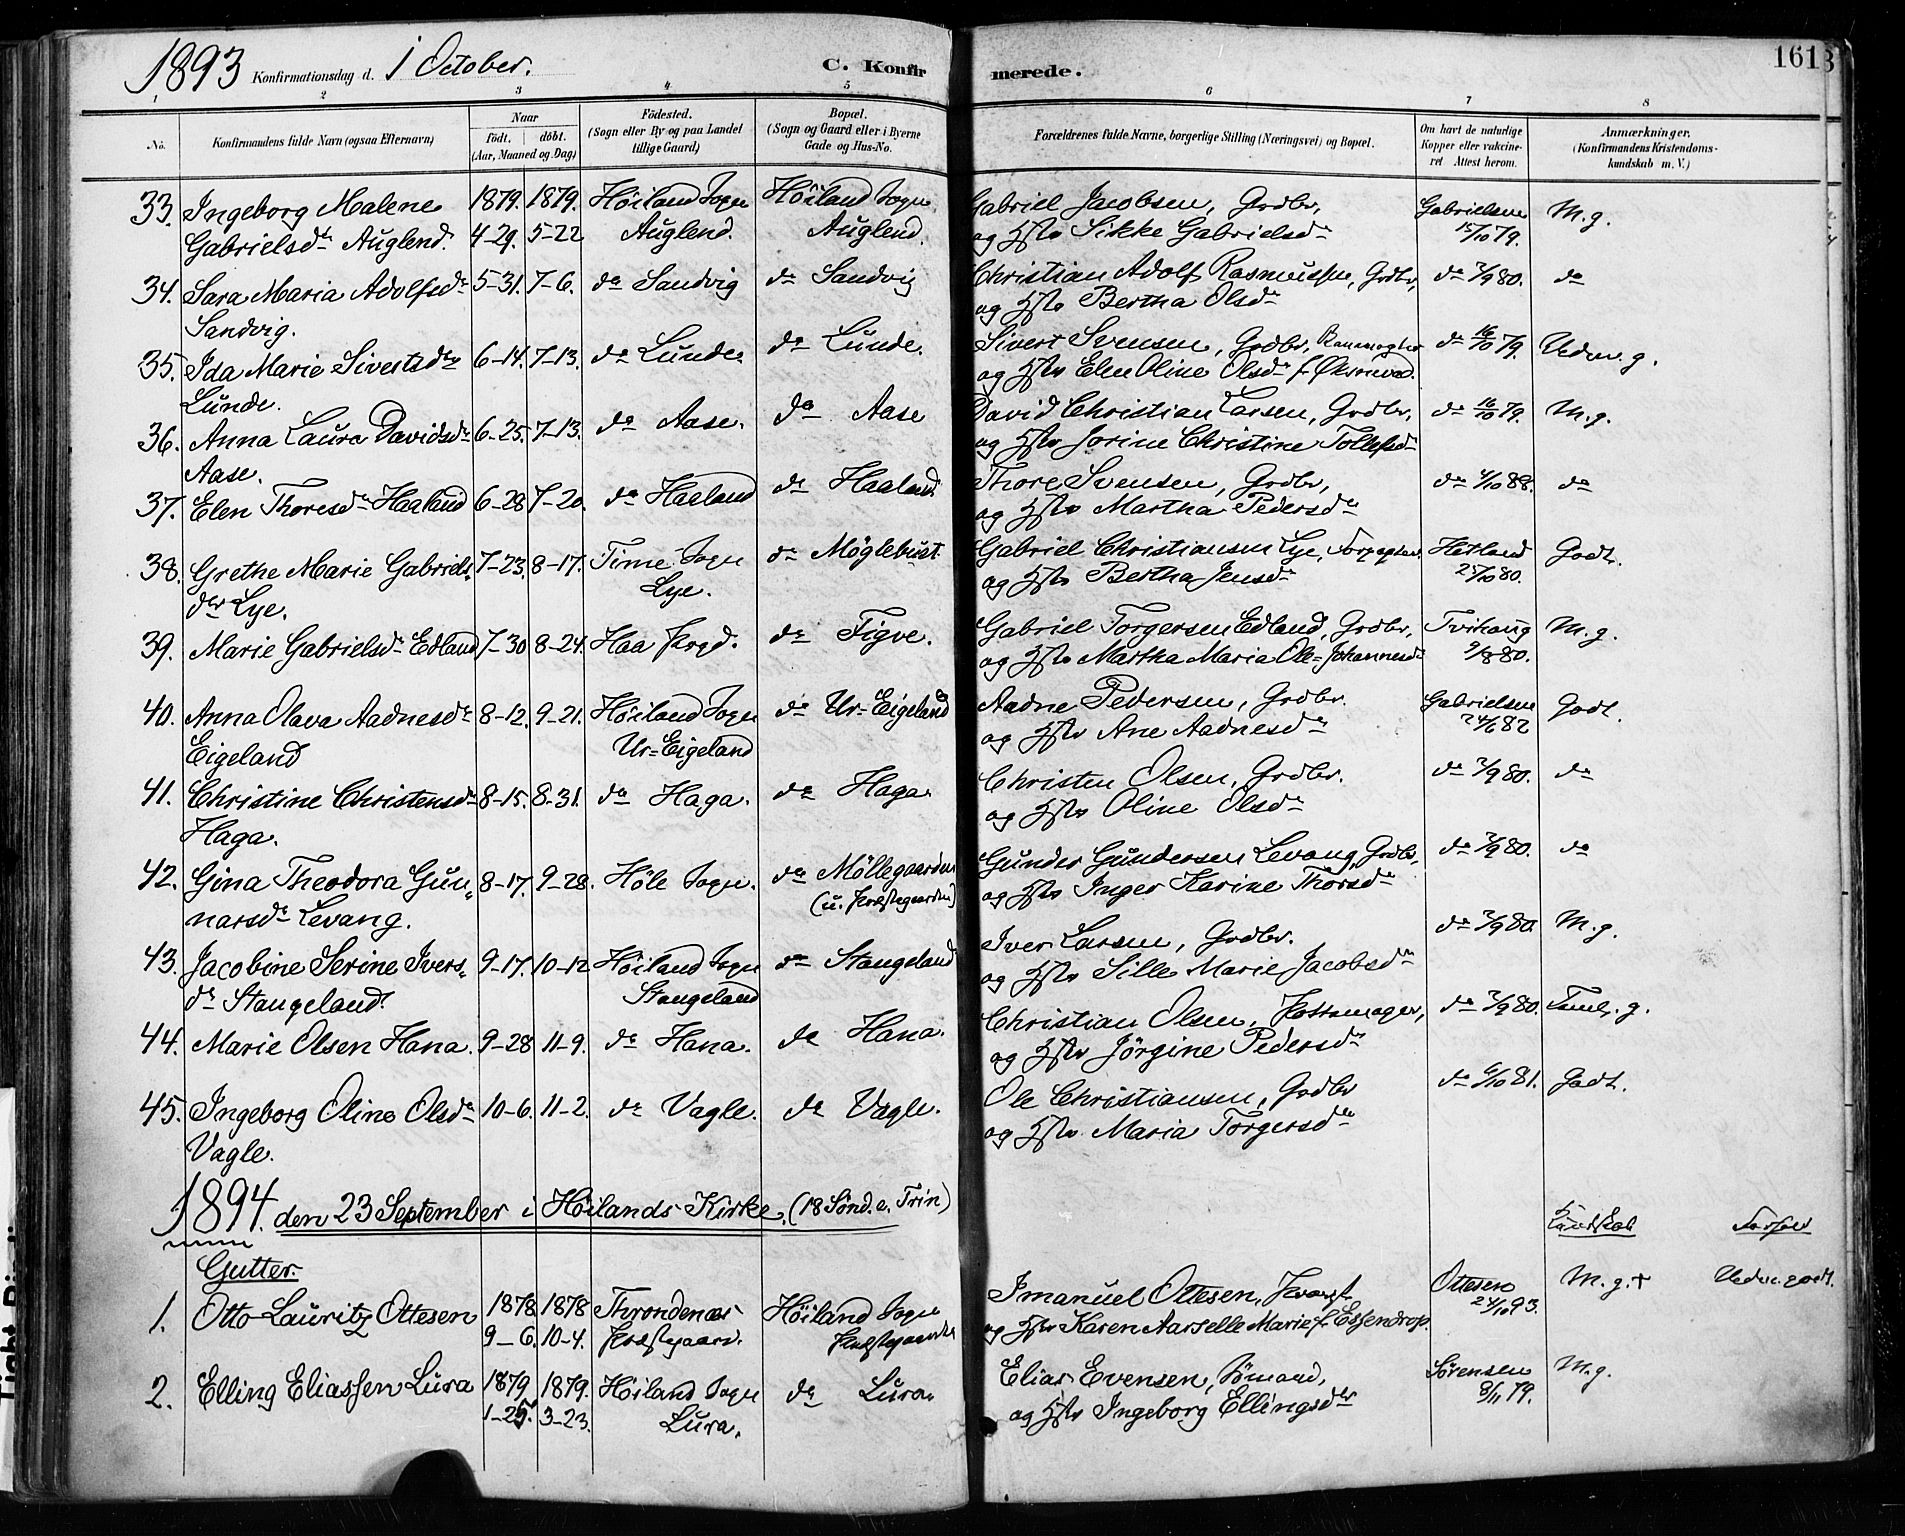 1893 Konfirmationsdag d. 1 October. C. Konfirmerede. 161
1 2 3 4 5 6 7 8
No. Konfirmandens fulde Navn (ogsaa Efternavn) Naar födt. döbt. (Aar, Maaned og Dag) Födested. (Sogn eller By og paa Landet tillige Gaard) Bopæl. (Sogn og Gaard eller i Byerne Gade og Hus-No. Forældrenes fulde Navne, borgerlige Stilling (Næringsvei) og Bopæl. Om havt de naturlige Kopper eller vakcineret Attest herom. Anmærkninger. (Konfirmandens Kristendomskundskab m. V.)
33. Ingeborg Malene 1879. 1879. Höiland Sogn Höiland Sogn Gabriel Jacobsen, Grdbr, Gabrielsen M.g.
Gabrielsdr Auglend. 4-29. 5-22 Auglend. Auglend. og Hstr Sikke Gabrielsdr 15/10 79.
34. Sara Maria Adolfsdr 5-31. 7-6. do Sandvig do Sandvig Christian Adolf Rasmussen, Grdbr, do 7/9 80. do
Sandvig. og Hstr Bertha Olsdr
35. Ida Marie Sivertsdr 6-14. 7-13. do Lunde. do Lunde. Sivert Svensen, Grdbr, do 16/10 79. Udm. g.
Lunde. og Hstr Elen Oline Olsdr f. Öksnevad.
36. Anna Laura Davidsdr 6-25. 7-13. do Aase. do Aase David Christian Larsen, Grdbr, do 16/10 79. M.g.
Aase. og Hstr Jorine Christine Tollefsdr
37. Elen Thoresdr Haaland 6-28 7-20. do Haaland do Haaland Thore Svensen, Grdbr, do 4/10 88. do
og Hstr Martha Pedersdr
38. Grethe Marie Gabriels- 7-23. 8-17. Time Sogn do Möglebust. Gabriel Christiansen Lye, Hetland Godt.
dtr Lye. Lye. og Hstr Bertha Jensdr 25/10 80.
39. Marie Gabrielsdr Edland 7-30 8-24. Haa Prgd. do Figve. Gabriel Torgersen Edland, Grdbr, Tvihaug M.g.
og Hstr Martha Maria Ole-Johannesdr 9/8 80.
40. Anna Olava Aadnesdr 8-12. 9-21. Höiland Sogn do Ur-Eigeland Aadne Pedersen, Grdbr. Gabrielsen Godt.
Eigeland Ur-Eigeland og Hstr Ane Aadnesdr 24/6 82
41. Christine Christensdr 8-15. 8-31. do Haga. do Haga. Christen Olsen, Grdbr. do 7/9 80. do
Haga. og Hstr Oline Olsdr
42. Gina Theodora Gun- 8-17. 9-28. Höle Sogn. do Möllegaarden Gunder Gundersen Levang, Grdbr, do 7/9 80. do
narsdr Levang. (u. Præstegaarden) og Hstr Inger Karine Thorsdr
43. Jacobine Serine Ivers- 9-17. 10-12 Höiland Sogn do Stangeland Iver Larsen, Grdbr. do 7/9 80. M.g.
dr Stangeland. Stangeland og Hstr Sille Marie Jacobsdr
44. Marie Olsen Hana. 9-28 11-9. do Hana. do Hana. Christian Olsen, Pottemager, do 7/9 80. Taml. g.
og Hstr Jörgine Pedersdr
45. Ingeborg Oline Olsdr 10-6. 11-2. do Vagle. do Vagle. Ole Christiansen, Grdbr do 6/10 81. Godt.
Vagle. og Hstr. Maria Torgersdr
1894. den 23 September i Höilands Kirke. (18 Sönd. e. Trin) Kundskab Forhold
Gutter.
1. Otto Lauritz Ottesen 1878 1878 Throndenæs Höiland Sogn Imanuel Ottesen, Provst Ottesen M.g.+ Udm. godt.
9-6. 10-4. Præstegaard. Præstegaarden og Hstr Karen Marselle Marie f. Essendrop. 24/10 93.
2. Elling Eliassen Lura 1879 1879. Höiland Sogn do Lura. Elias Evensen, Sömand, Sörensen M.g.
1-25. 3-23. Lura. og Hstr Ingeborg Ellingsdtr 8/11 79.